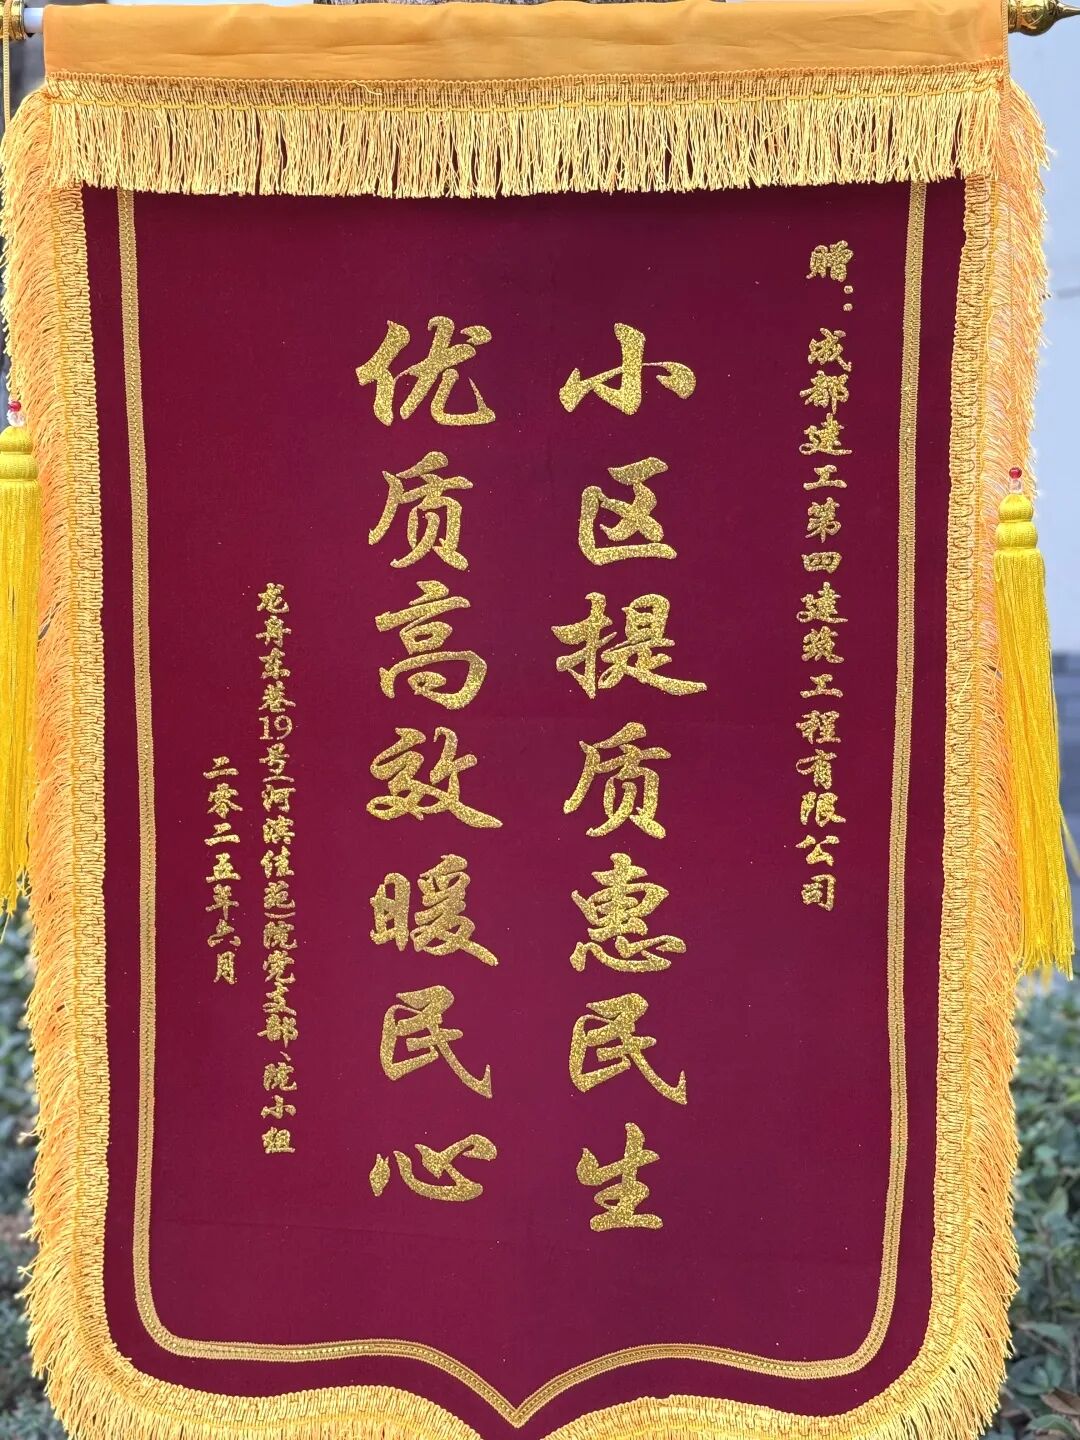 赠：成都建工第四建筑工程有限公司
小区提质惠民生
优质高效暖民心
龙舟东巷19号(河滨佳苑)院党支部、院小组
二零二五年六月